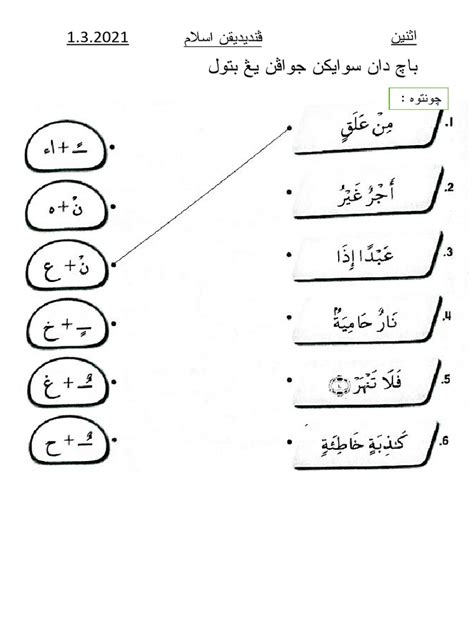 اثنين ڤنديديقن اسلام 1.3.2021
باچ دان سوايكن جواڤن يڠ بتول
چونتوه :
.1 مِنْ عَلَقٍ
.2 أَجْرٌ غَيْرُ
.3 عَبْدًا إِذَا
.4 نَارٌ حَامِيَةٌ
.5 فَلَا تَنْهَرْ
.6 كَٰذِبَةٍ خَاطِئَةٍ
ـً + اء
نْ + ه
نْ + ع
ـٍ + خ
ـٌ + غ
ـٌ + ح